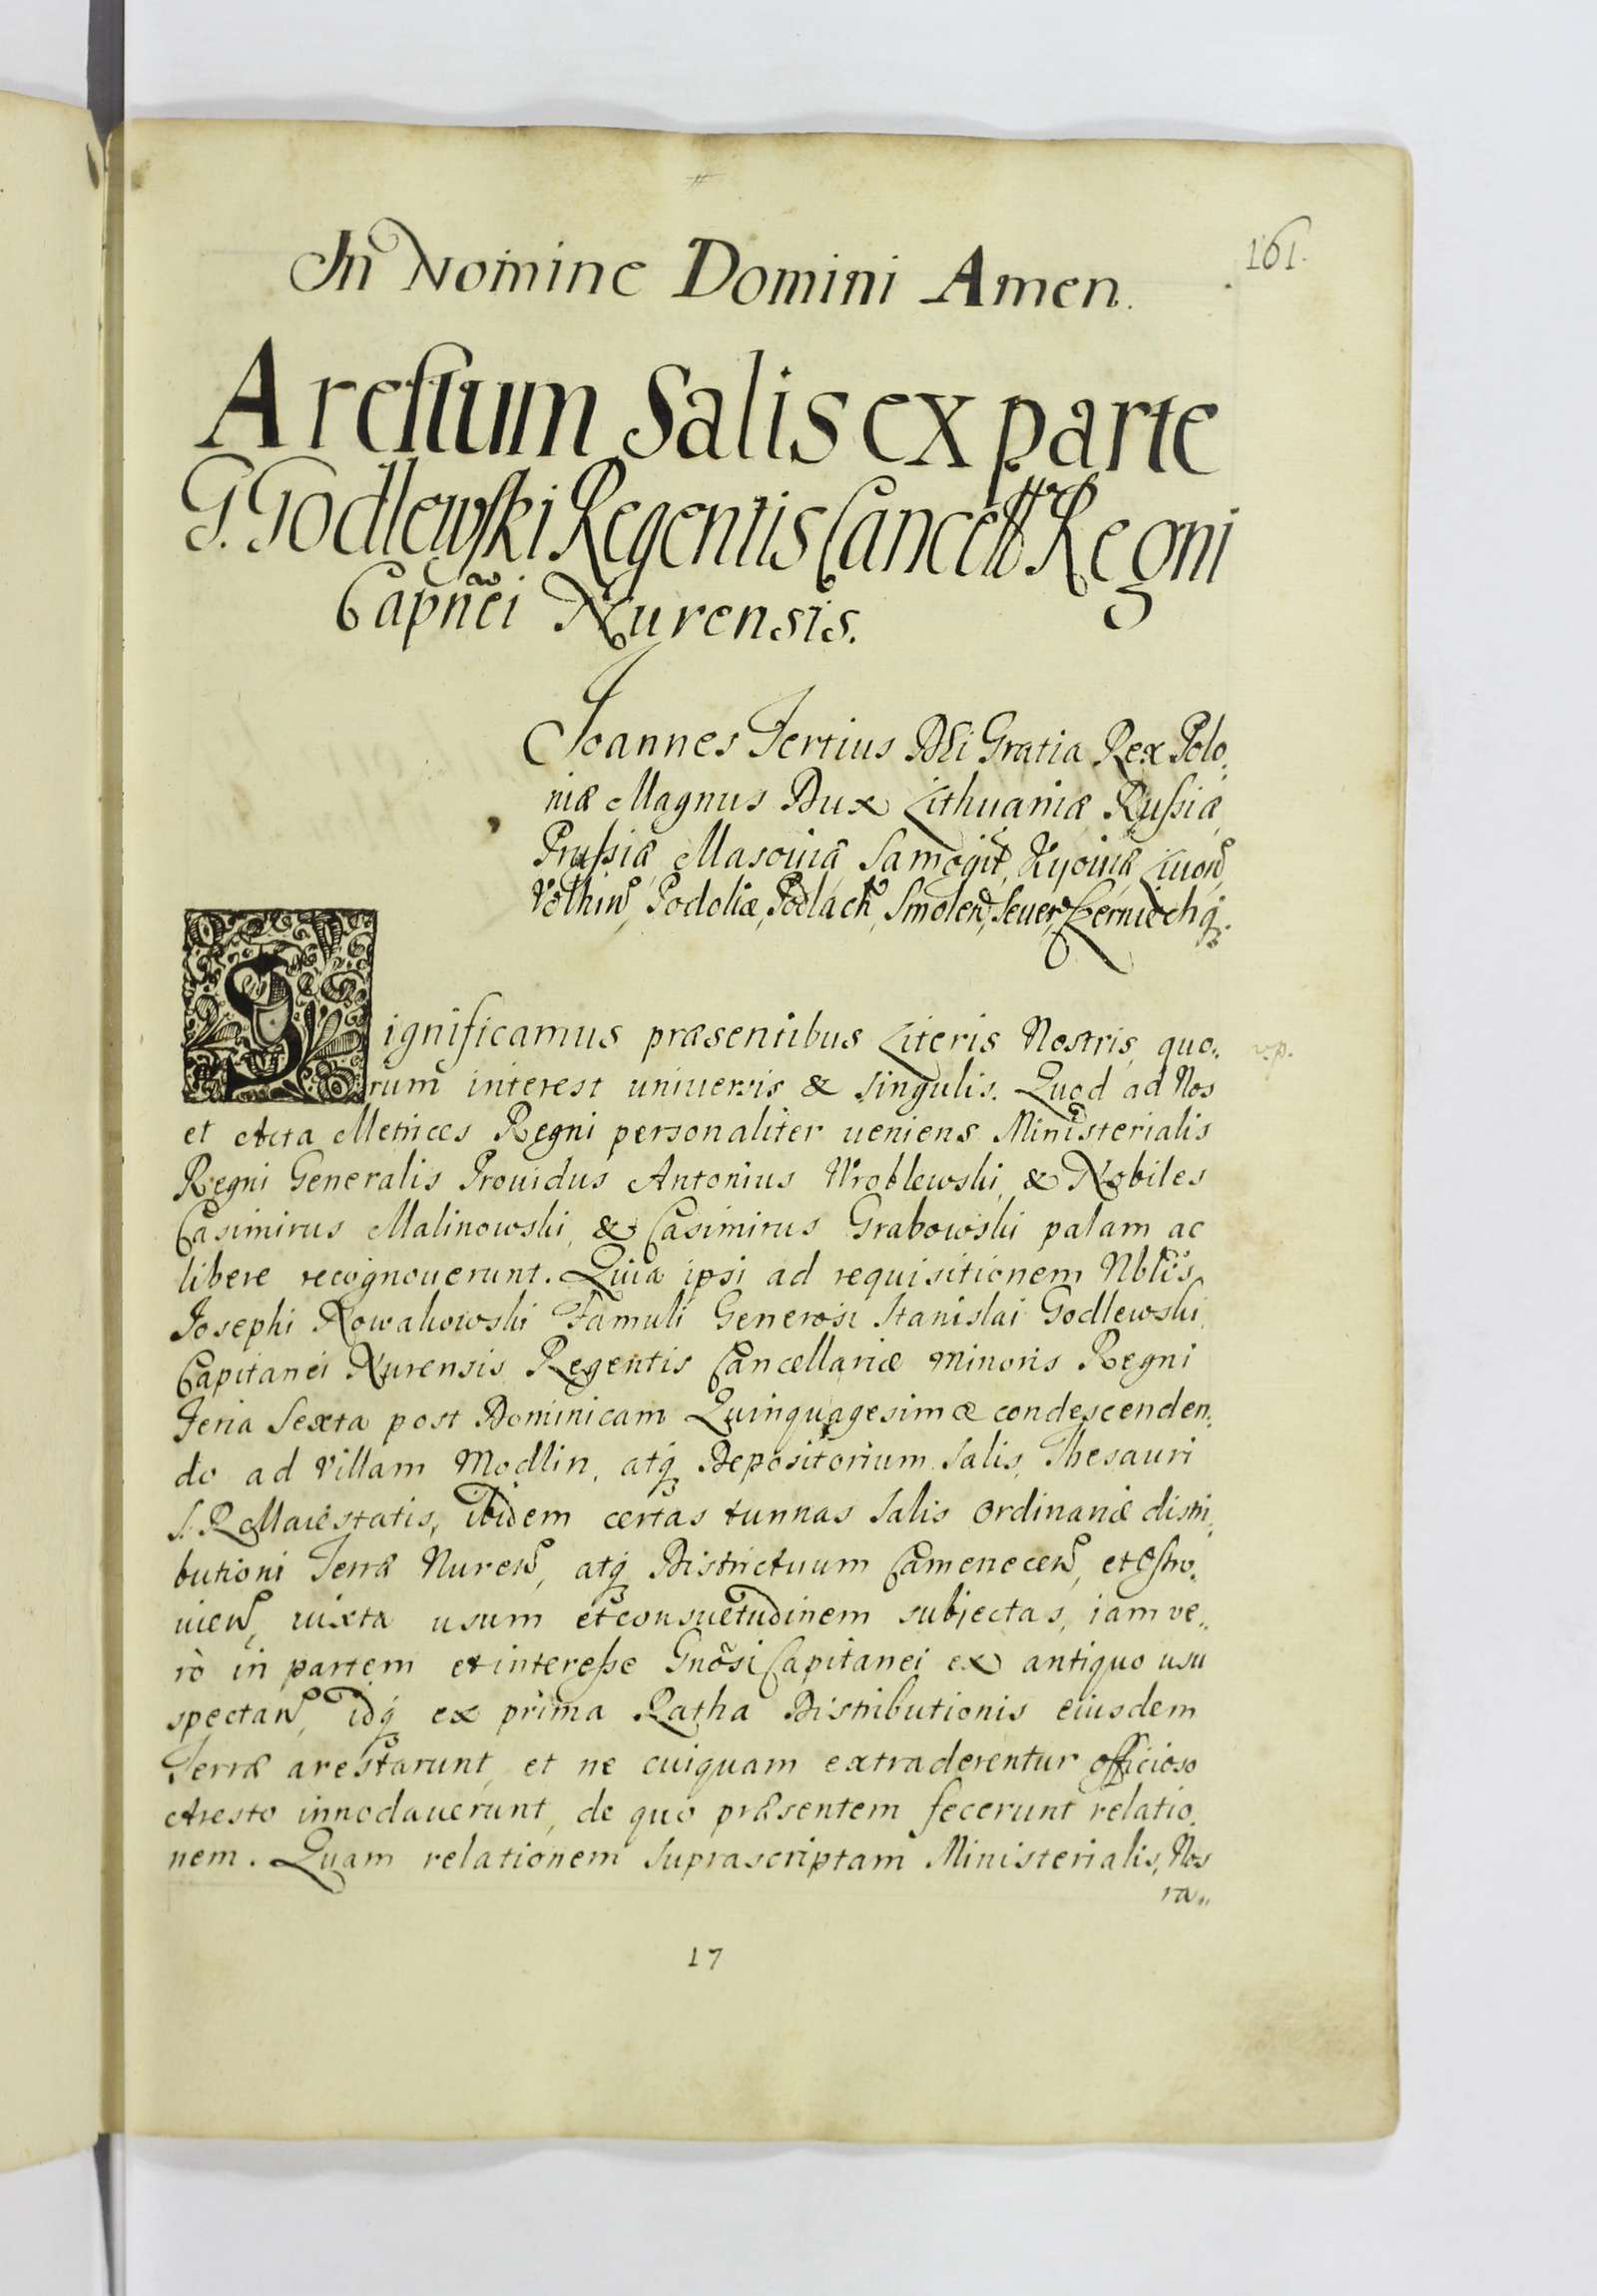 161.
In Nomine Domini Amen.
Arestum Salis ex parte
G. Godlewski Regentis Cancell Regni
Capnei Nurensis.
Joannes Tertius DEi Gratia Rex Polo,
niæ Magnus Dux Lithuaniæ Russiæ,
Prussiæ, Masouiæ, Samogit, Kyouiæ, Liuon,
Volhin, Podoliæ, Podlach, Smolen, Seuer, Czerniechq.
Significamus præsentibus Literis Nostris, quo,
rum interest uniuersis & singulis. Quod ad Nos
et Acta Metrices Regni personaliter ueniens Ministerialis
Regni Generalis Prouidus Antonius Wroblewski, & Nobiles
Casimirus Malinowski, & Casimirus Grabowski palam ac
libere recognouerunt. Quia ipsi ad requisitionem Nblis
Josephi Nowakowski Famuli Generosi Stanislai Godlewski,
Capitanei Nurensis, Regentis Cancellariæ Minoris Regni
Feria Sexta post Dominicam Quinquagesimæ condescenden,
do ad Villam Modlin, atq Depositorium Salis, Thesauri
S. R. Maiestatis, ibidem certas tunnas Salis Ordinariæ distri,
butioni Terræ Nuren, atq Districtuum Camenecen, et Ostro,
uien, iuxta usum et consuetudinem subjectas, iam ve,,
rò in partem et interesse Gnosi Capitanei ex antiquo usu
spectan, idq ex prima Ratha Distributionis eiusdem
Terræ arestarunt, et ne cuiquam extraderentur officioso
Aresto innodauerunt, de quo præsentem fecerunt relatio,
nem. Quam relationem suprascriptam Ministerialis, Nos
ra,,
17